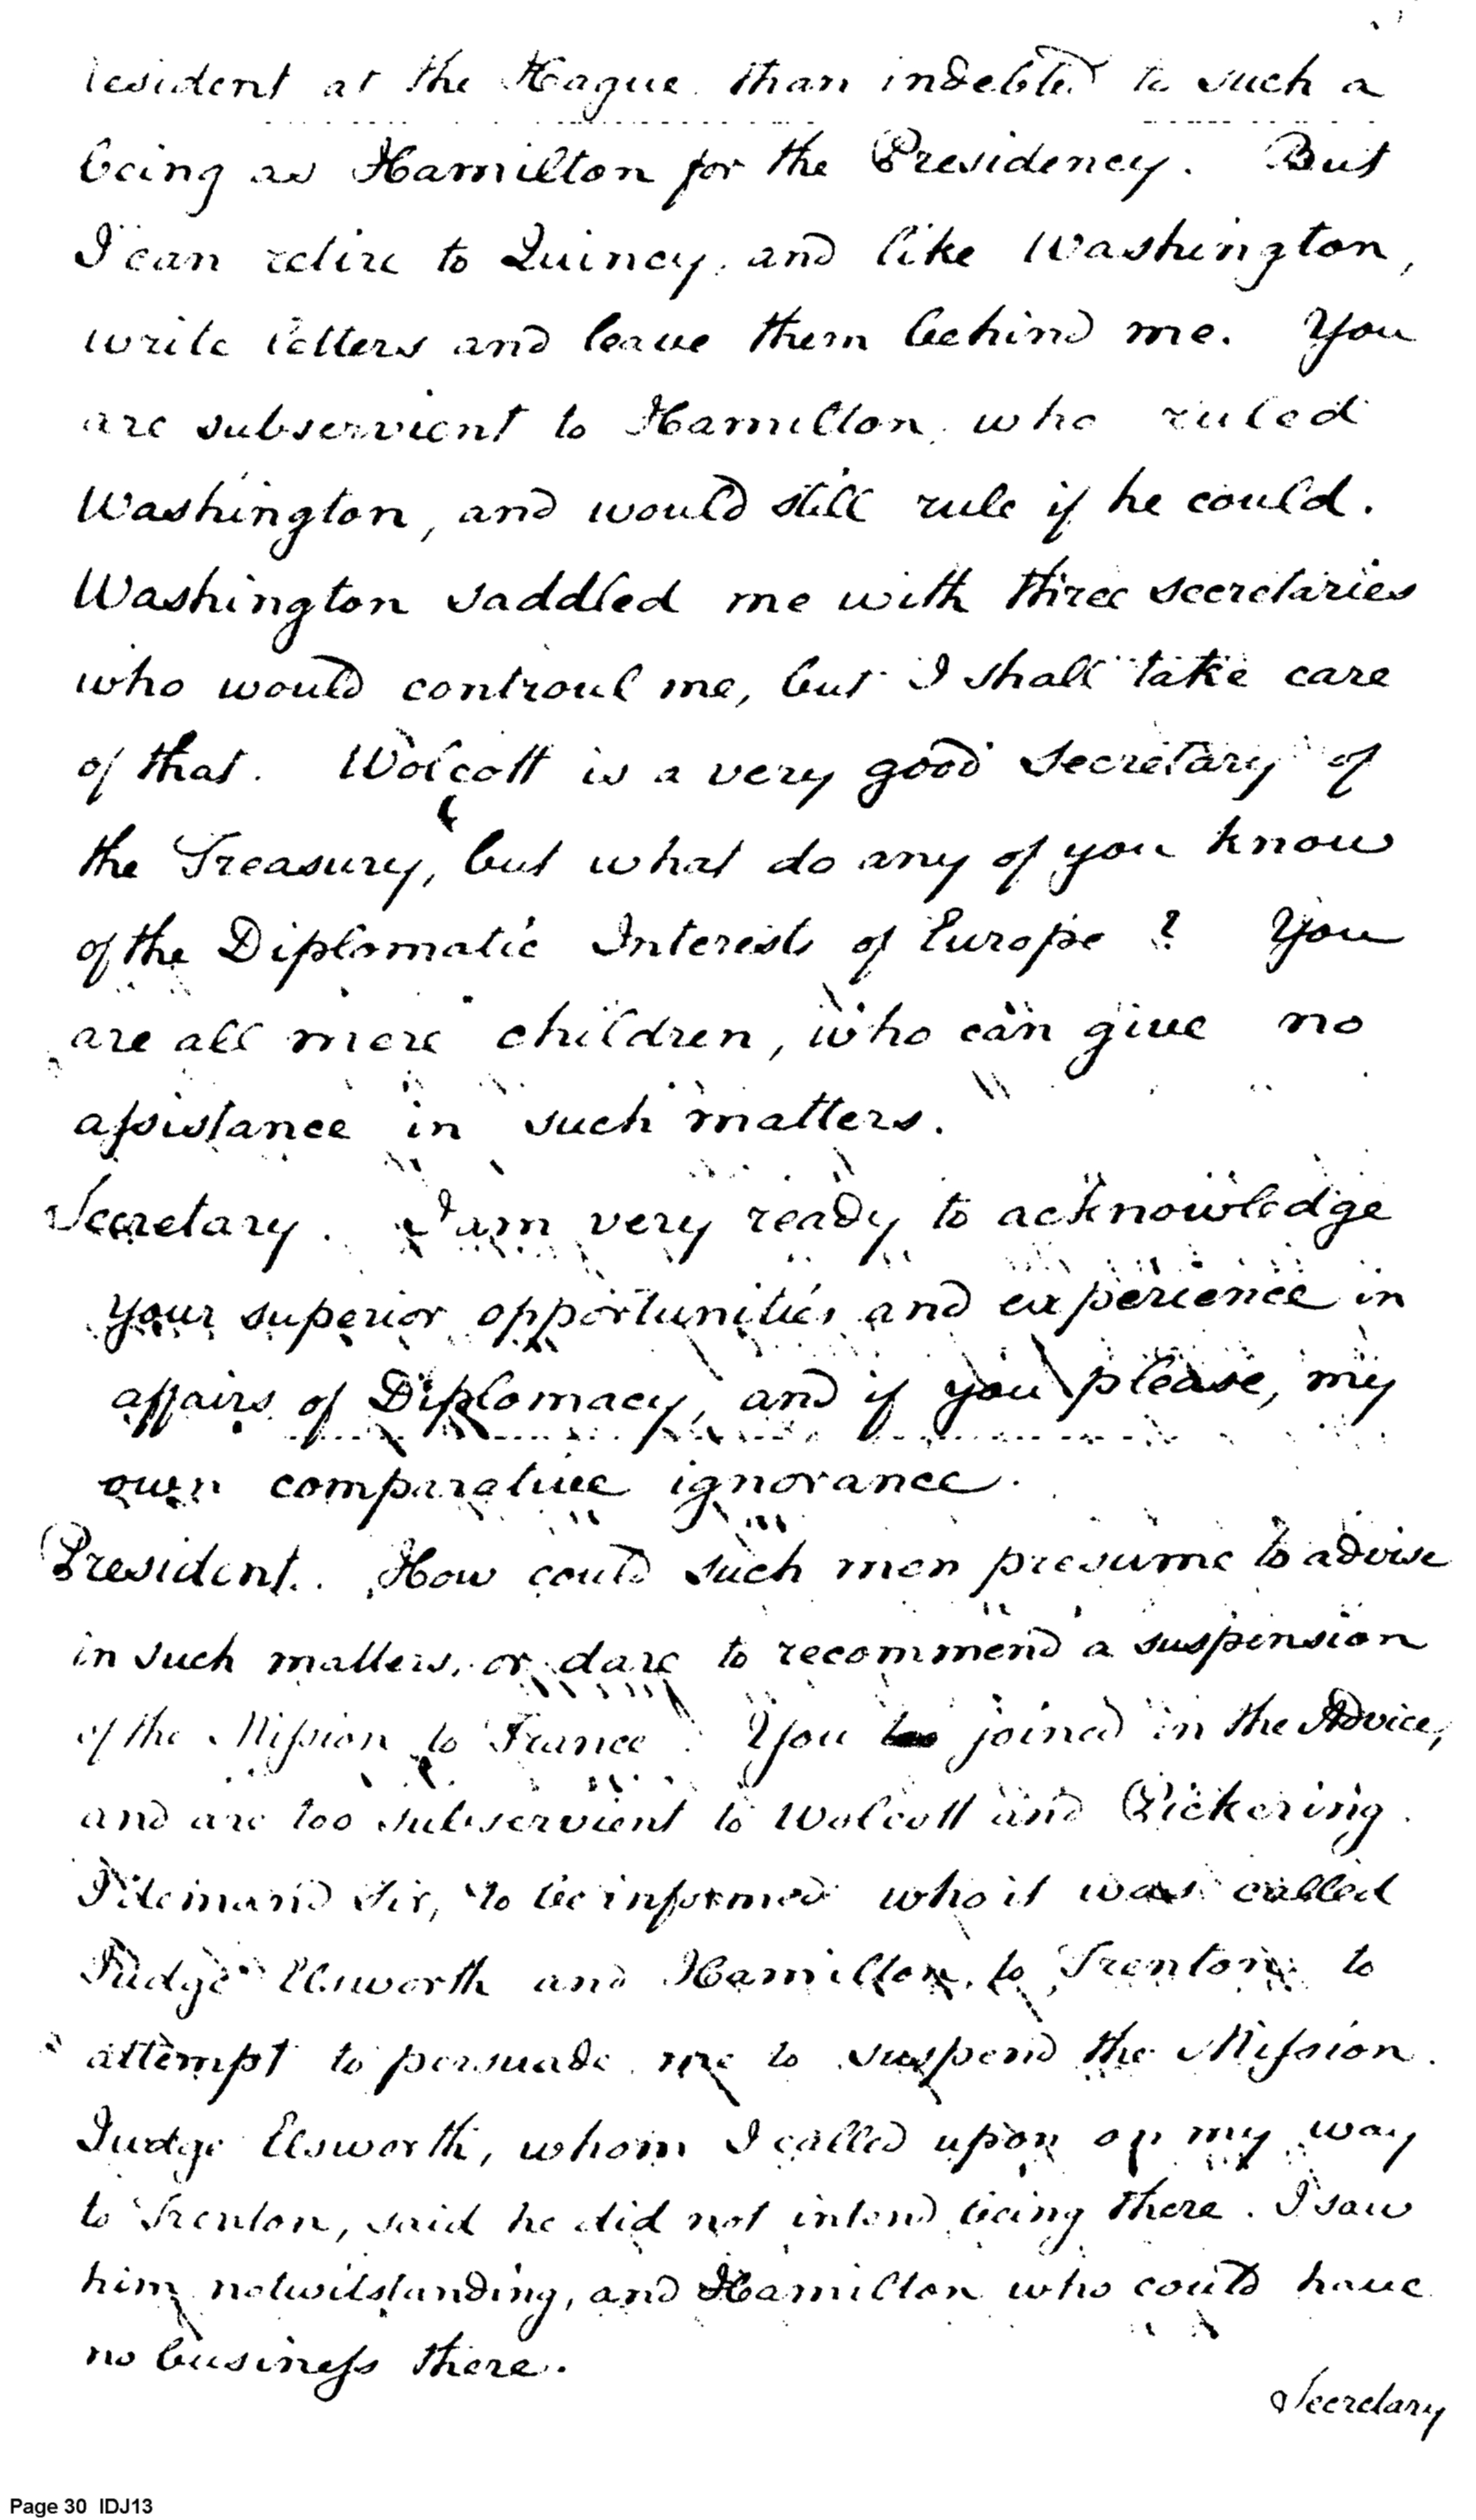 resident at the Hague than indebted to such a
being as Hamilton for the Presidency. But
I can retire to Quincy, and like Washington,
write letters and leave them behind me. You
are subservient to Hamilton, who ruled
Washington, and would still rule if he could.
Washington saddled me with three secretaries
who would controul me, but I shall take care
of that. Wolcott is a very good Secretary of
the Treasury, but what do any of you know
of the Diplomatic Interests of Europe? You
are all mere children, who can give no
assistance in such matters.
Secretary. I am very ready to acknowledge
your superior opportunities and experience in
affairs of Diplomacy, and if you please, my
own comparative ignorance.
President. How could such men presume to advise
in such matters, or dare to recommend a suspension
of the Mission to France. You joined in the Advice,
and are too subservient to Wolcott and Pickering.
I demand Sir, to be informed who it was called
Judge Elsworth and Hamilton to Trenton to
attempt to persuade me to suspend the Mission.
Judge Elsworth, whom I called upon on my way
to Trenton, said he did not intend being there. I saw
him notwitstanding, and Hamilton who could have
no business there.
Secretary
Page 30 IDJ13